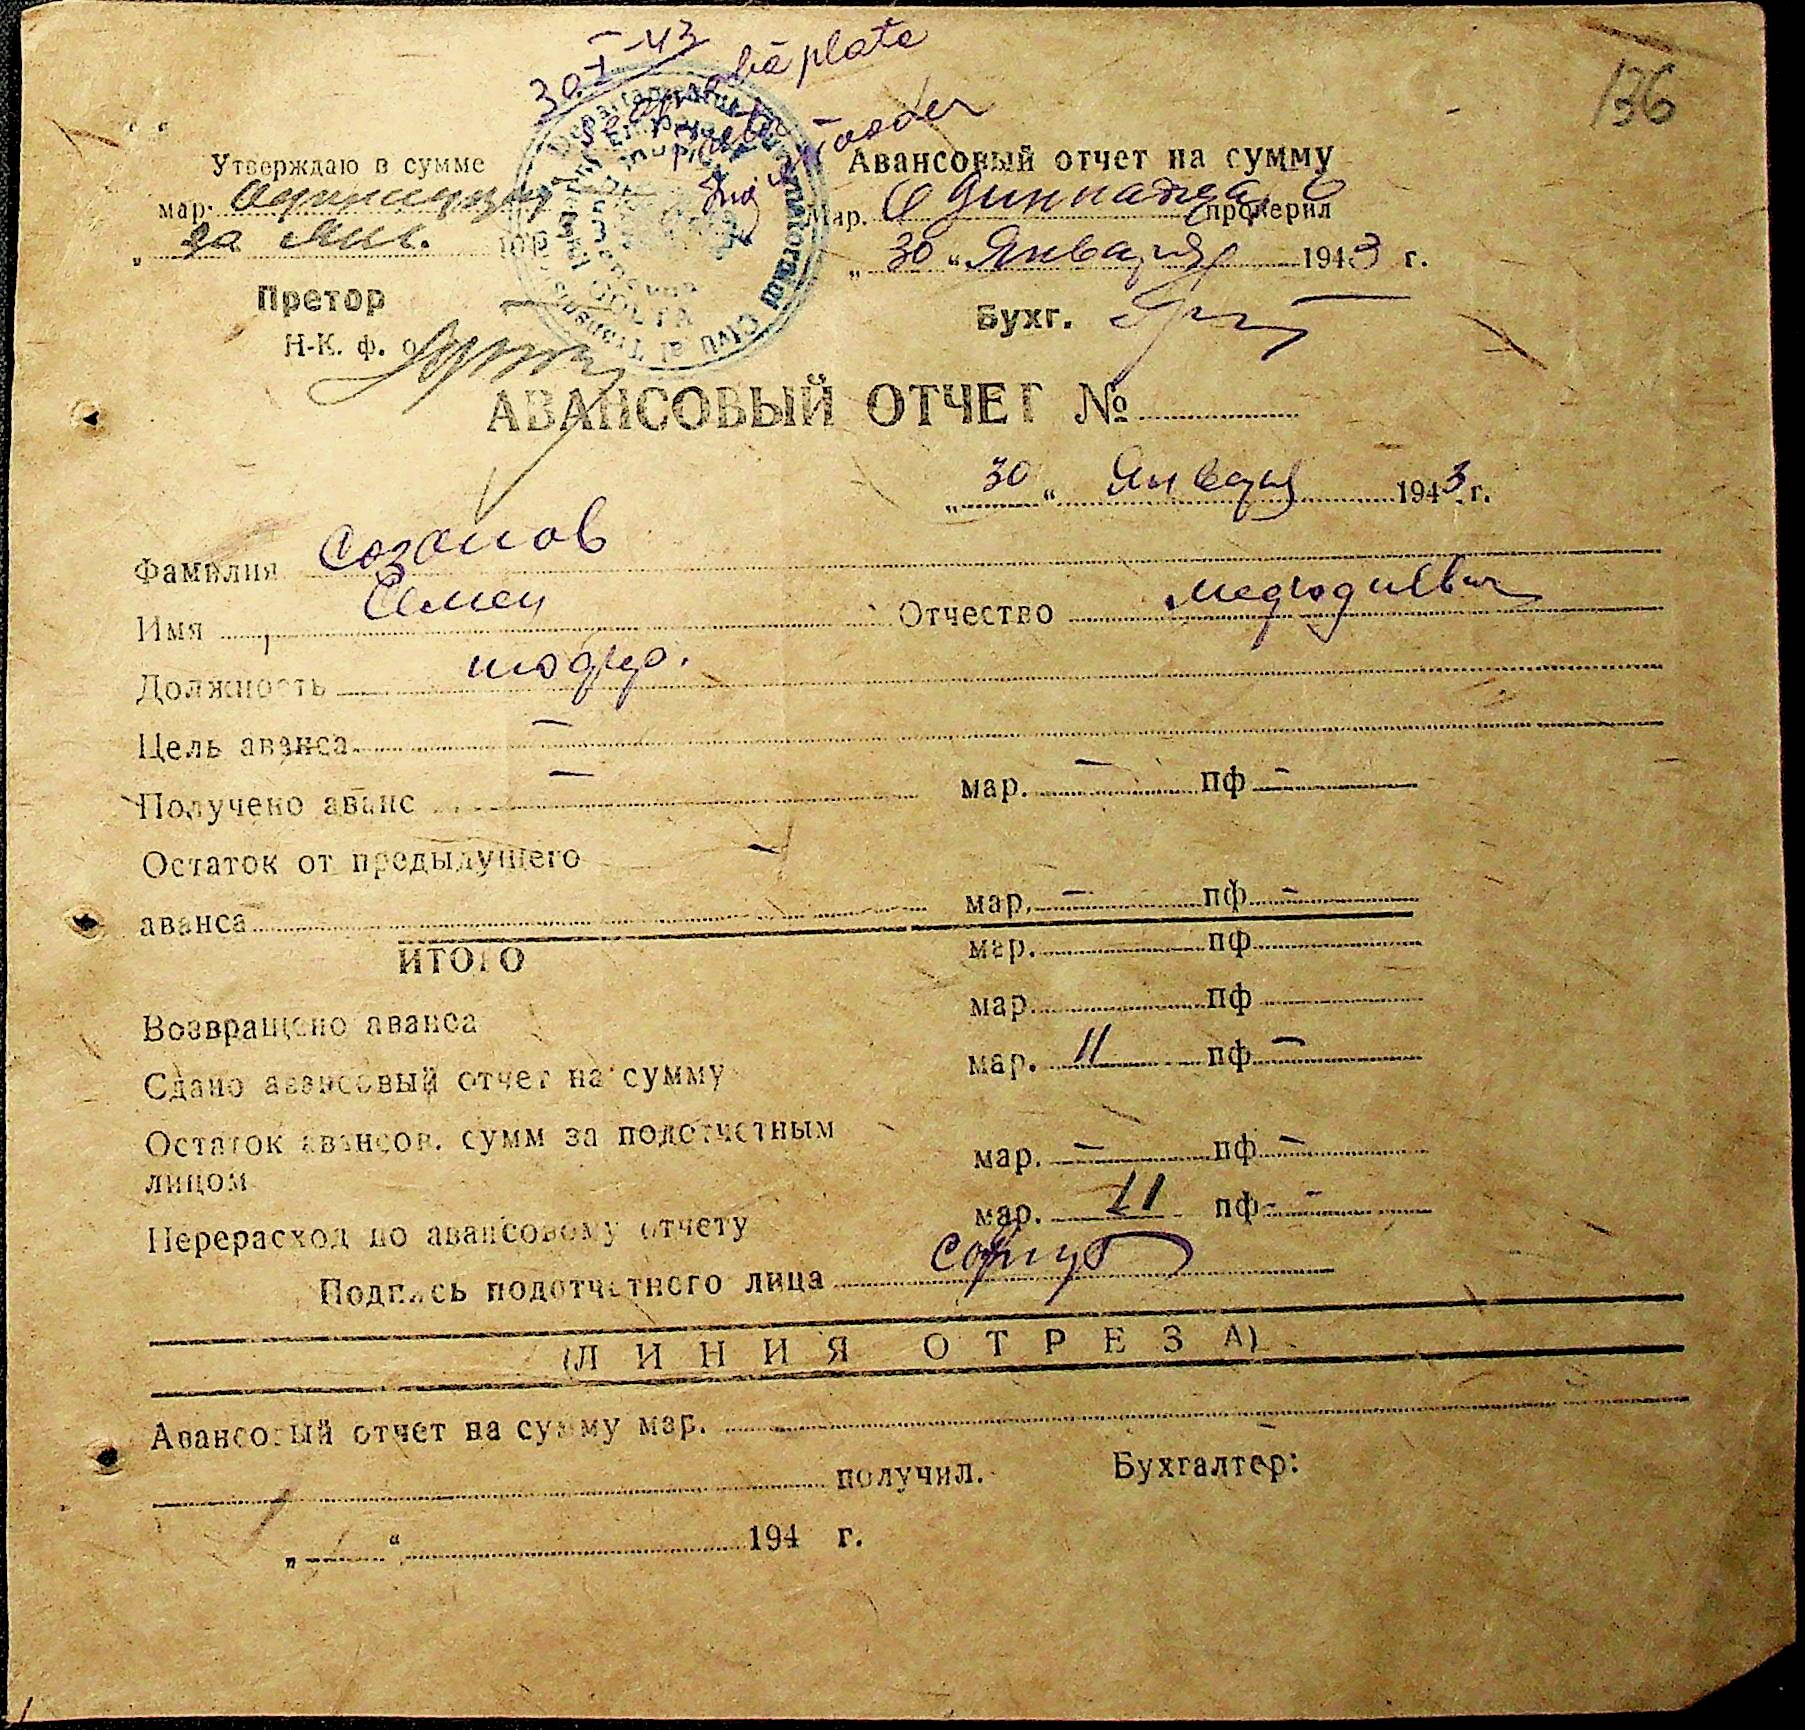 30 I-43
136
Утверждаю в сумме
Авансовый отчет на сумму
мар. Одиннадцать
мар. Одиннадцать проверил
„ за Янв.
„ 30 “ Января 1943 г.
Претор
Бухг.
Н-К. ф. о
АВАНСОВЫЙ ОТЧЕТ №
„ 30 “ Января 1943 г.
Фамилия Созонов
Имя Семен Отчество Медодиевич
Должность шофер.
Цель аванса —
Получено аванс — мар. — пф —
Остаток от предыдущего —
аванса мар. — пф —
ИТОГО мар. пф
Возвращено аванса мар. пф
Сдано авансовый отчет на сумму мар. 11 пф —
Остаток авансов. сумм за подотчетным
лицом мар. — пф —
Перерасход по авансовому отчету мар. 11 пф —
Подпись подотчетного лица
(ЛИНИЯ ОТРЕЗА)
Авансовый отчет на сумму мар.
получил. Бухгалтер:
„ “ 194 г.